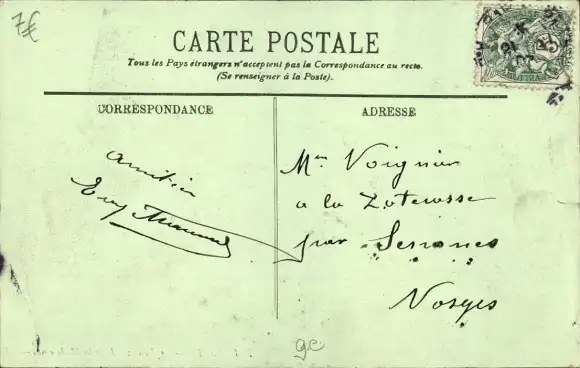 7€
CARTE POSTALE
Tous les Pays étrangers n'acceptent pas la Correspondance au recto.
(Se renseigner à la Poste).
CORRESPONDANCE
ADRESSE
Voignier
a la
par
Vosges
gc